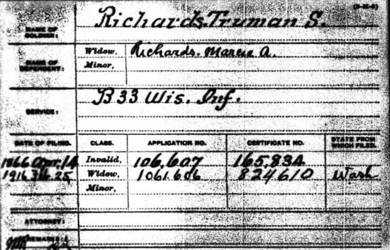 Richards, Truman S.
NAME OF SOLDIER:
NAME OF DEPENDENT:
Widow, Richards, Marcie A.
Minor,
SERVICE:
B 33 Wis. Inf.
DATE OF FILING. CLASS. APPLICATION NO. CERTIFICATE NO. STATE FROM WHICH FILED.
1866 Apr. 14 Invalid, 106,607 165,834
1916 25 Widow, 1061.606 824610 Wash
Minor,
ATTORNEY:
REMARKS: